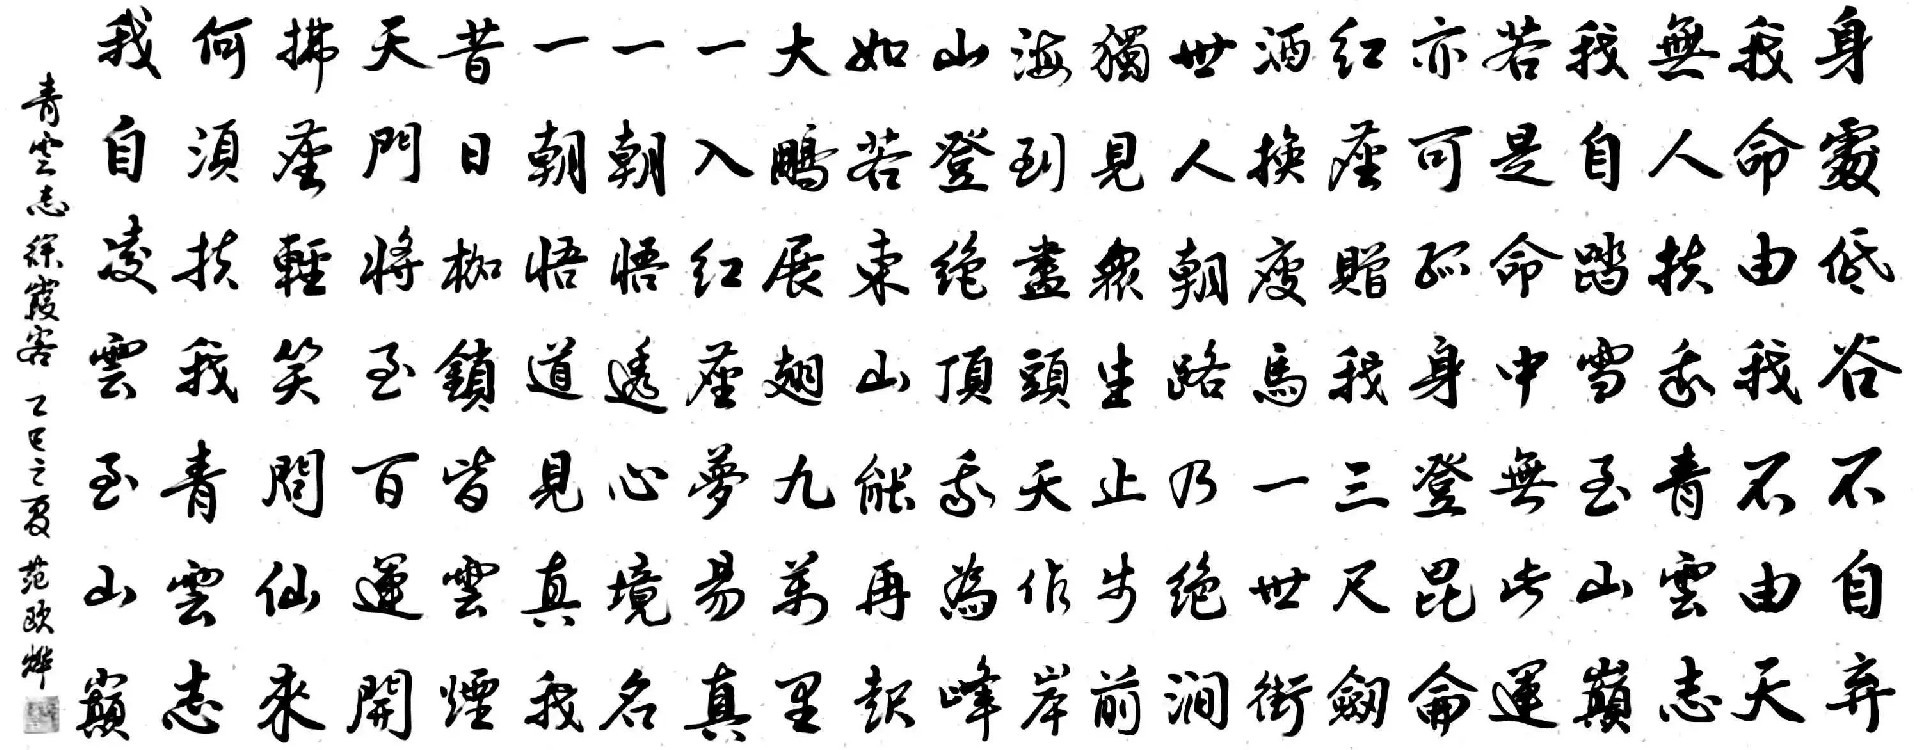 身處低谷不自弃
我命由我不由天
無人扶我青雲志
我自踏雪至山巔
若是命中無此運
亦可孤身登昆侖
紅塵贈我三尺劍
酒換瘦馬一世街
世人朝路乃絕澗
獨見衆生止步前
海到盡頭天作岸
山登絕頂我為峰
如若東山能再起
大鵬展翅九萬里
一入紅塵夢易真
一朝悟透心境名
一朝悟道見真我
昔日枷鎖皆雲煙
天門將至百運開
拂塵輕笑問仙來
何須扶我青雲志
我自凌雲至山巔
青雲志 徐霞客 乙巳之夏 范欧烨